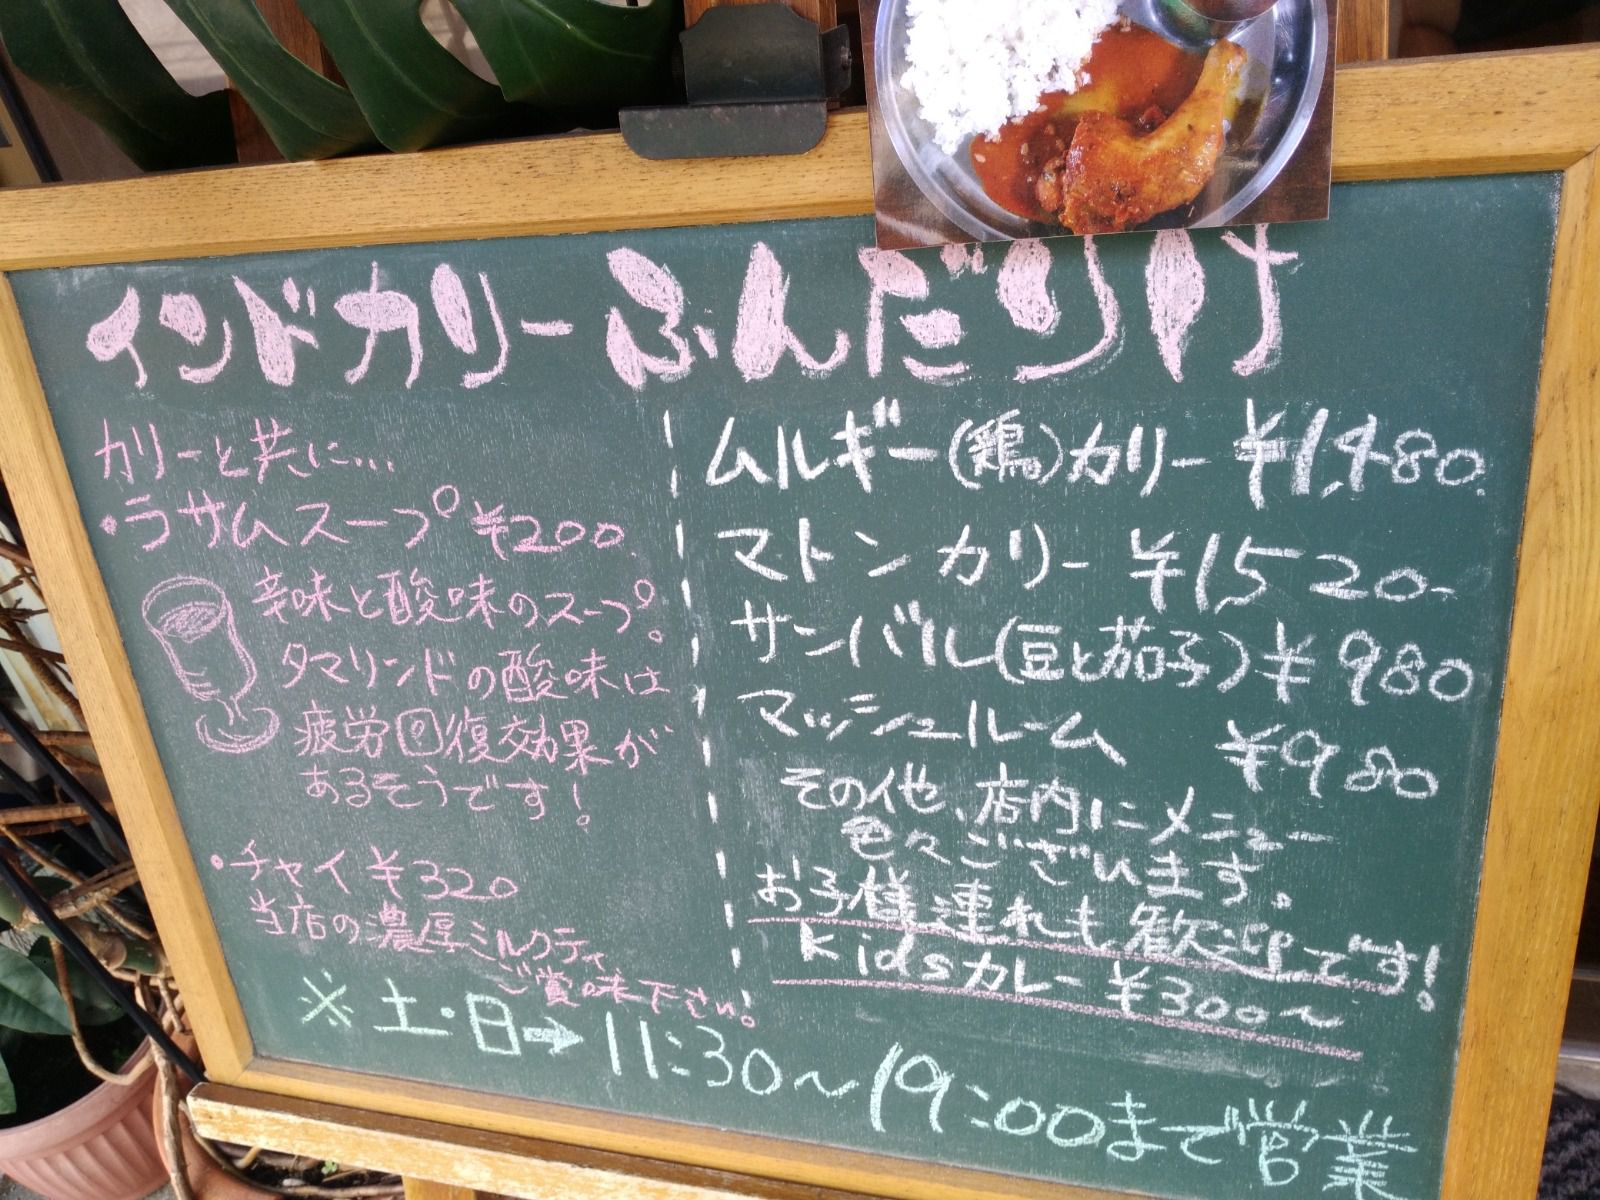 インドカリーふんだりけ
カリーと共に...
・ラサムスープ ¥200.
辛味と酸味のスープ。
タマリンドの酸味は
疲労回復効果が
あるそうです!
・チャイ ¥320
当店の濃厚ミルクティ、
ご賞味下さい。
ムルギー(鶏)カリー ¥1,480.
マトンカリー ¥1520-
サンバル(豆と茄子) ¥980
マッシュルーム ¥980
その他、店内にメニュー
色々ございます。
お子様連れも歓迎です!
kidsカレー ¥300~
※土・日→11:30~19:00まで営業